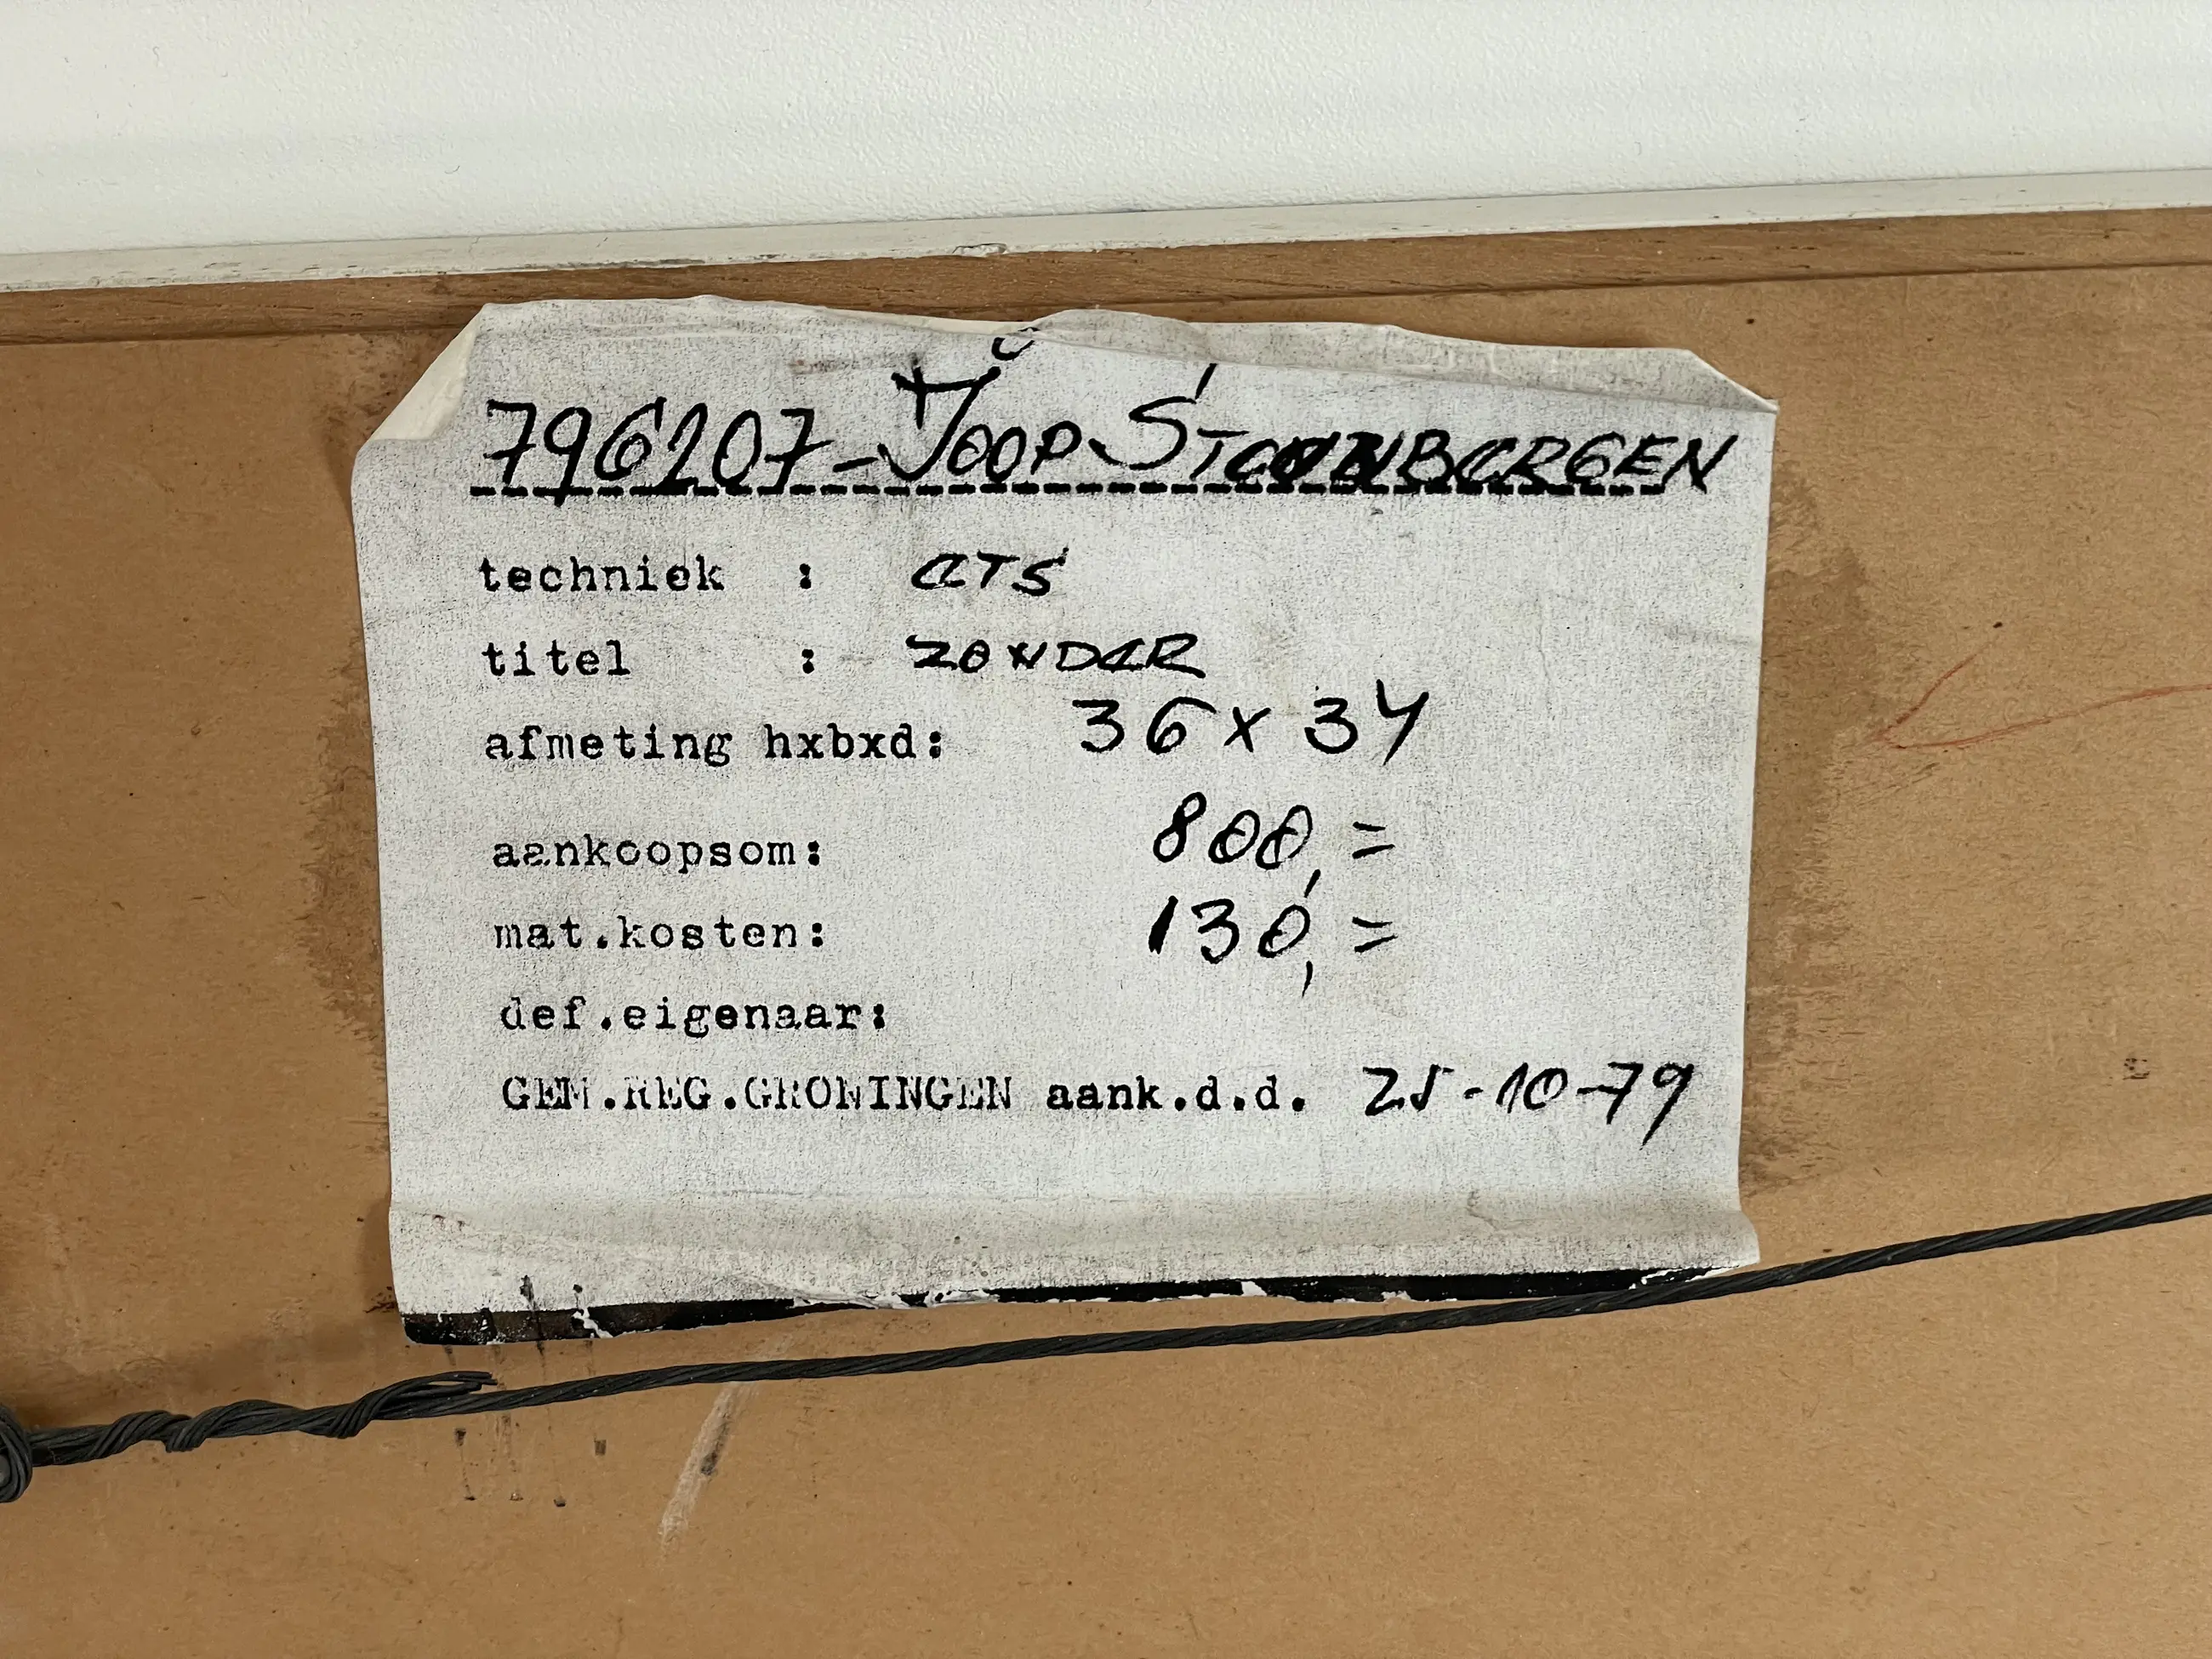 796207-JOOP STEENBERGEN
techniek : ETS
titel : ZONDER
afmeting hxbxd: 36 x 34
aankoopsom: 800,=
mat.kosten: 130,=
def.eigenaar:
GEM.REG.GRONINGEN aank.d.d. 25-10-79